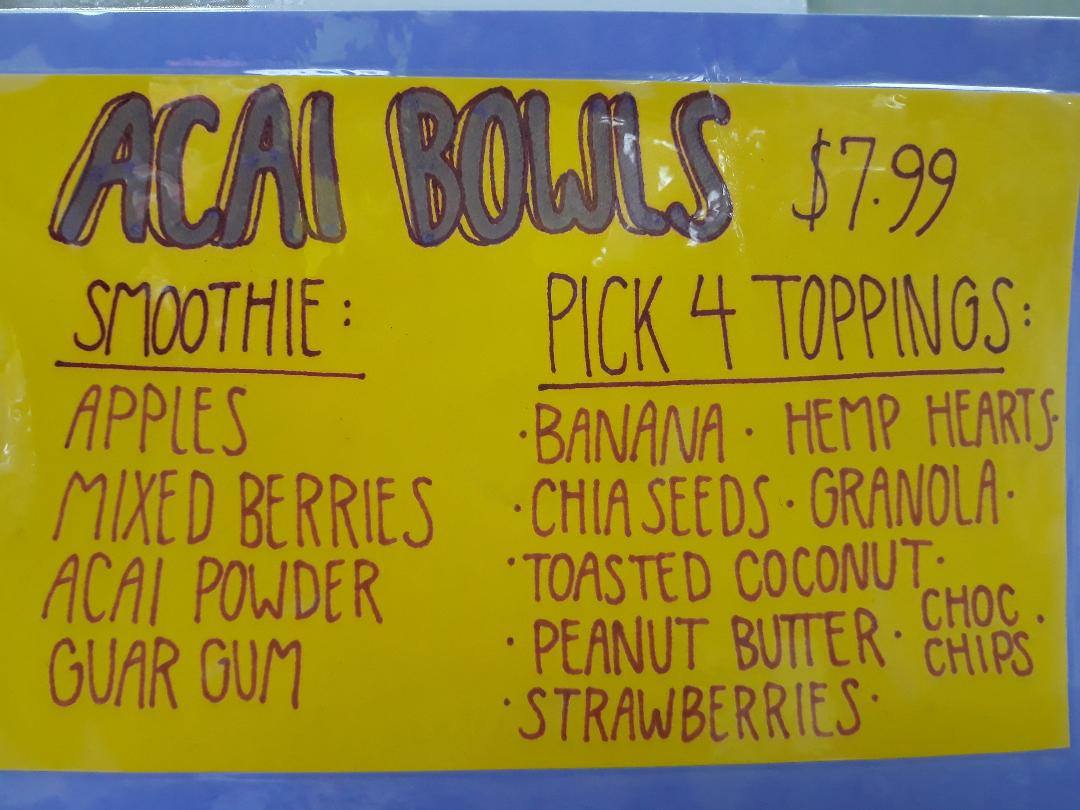 ACAI BOWLS $7.99
SMOOTHIE:
APPLES
MIXED BERRIES
ACAI POWDER
GUAR GUM
PICK 4 TOPPINGS:
·BANANA · HEMP HEARTS·
·CHIA SEEDS · GRANOLA·
·TOASTED COCONUT·
·PEANUT BUTTER · CHOC CHIPS ·
·STRAWBERRIES·